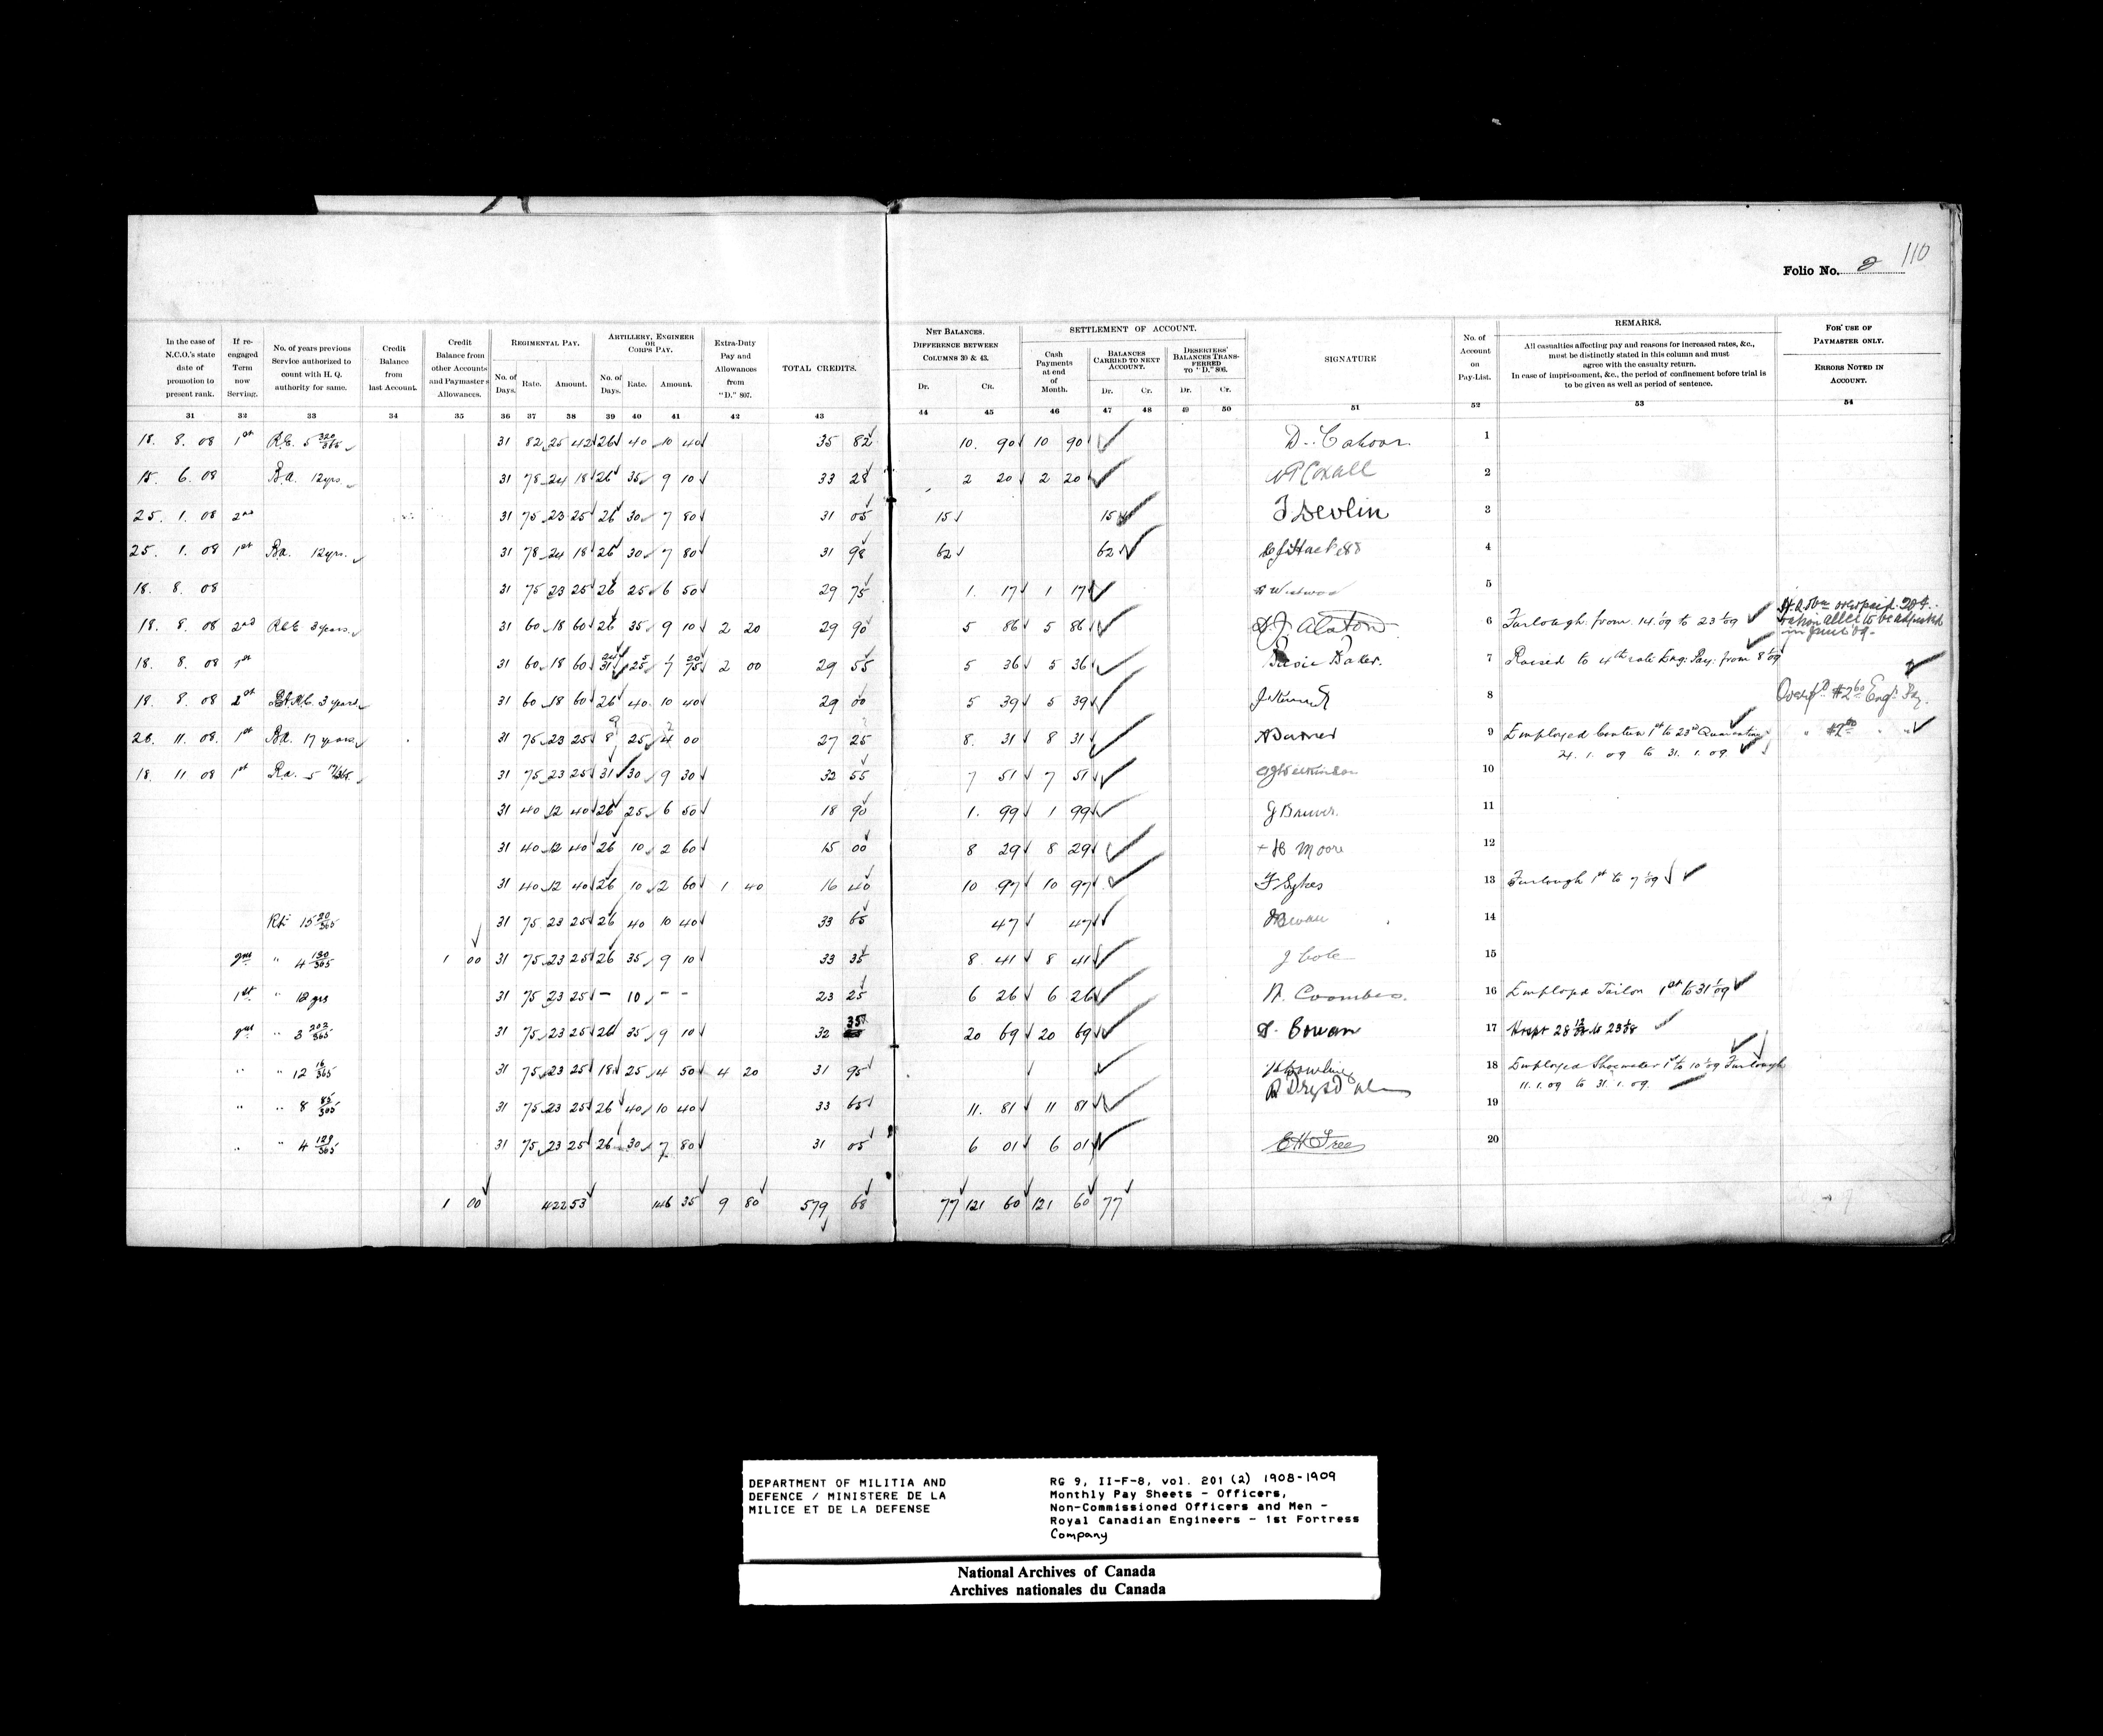 110
Folio No. 2
In the case of N.C.O.'s state date of promotion to present rank.
If re-engaged Term now Serving.
No. of years previous Service authorized to count with H. Q. authority for same.
Credit Balance from last Account.
Credit Balance from other Accounts and Paymaster's Allowances.
REGIMENTAL PAY.
No. of Days. Rate. Amount.
ARTILLERY, ENGINEER OR CORPS PAY.
No. of Days. Rate. Amount.
Extra-Duty Pay and Allowances from "D." 807.
TOTAL CREDITS.
NET BALANCES. DIFFERENCE BETWEEN COLUMNS 30 & 43.
Dr. Cr.
SETTLEMENT OF ACCOUNT.
Cash Payments at end of Month.
BALANCES CARRIED TO NEXT ACCOUNT.
Dr. Cr.
DESERTERS' BALANCES TRANSFERRED TO "D." 806.
Dr. Cr.
SIGNATURE
No. of Account on Pay-List.
REMARKS.
All casualties affecting pay and reasons for increased rates, &c., must be distinctly stated in this column and must agree with the casualty return.
In case of imprisonment, &c., the period of confinement before trial is to be given as well as period of sentence.
FOR USE OF PAYMASTER ONLY.
ERRORS NOTED IN ACCOUNT.
31 32 33 34 35 36 37 38 39 40 41 42 43 44 45 46 47 48 49 50 51 52 53 54
18. 8. 08 1st 31 82 25 42 26 40 10 40 35 82 10. 90 10 90 1
15. 6. 08 Ba. 12 yrs. 31 78 24 18 26 35 9 10 33 28 2 20 2 20 Coxall 2
25. 1. 08 2nd 31 75 23 25 26 30 7 80 31 05 15 15 Devlin 3
25. 1. 08 1st Ba. 12 yrs. 31 78 24 18 26 30 7 80 31 98 62 62 4
18. 8. 08 31 75 23 25 26 25 6 50 29 75 1. 17 1 17 5
18. 8. 08 2nd 3 years. 31 60 18 60 26 35 9 10 2 20 29 90 5 86 5 86 6 Furlough from 14 1/09 to 23 1/09
18. 8. 08 1st 31 60 18 60 31 25 7 75 2 00 29 55 5 36 5 36 Baker. 7 Raised to 4th rate Eng. Pay from 8 1/09
18. 8. 08 3 years 31 60 18 60 26 40 10 40 29 00 5 39 5 39 8
26. 11. 08. 1st Ba. 17 years 31 75 23 25 8 25 4 00 27 25 8. 31 8 31 9 Employed 1st to 23rd
24. 1. 09 to 31. 1. 09.
18. 11 08 1st Ra. 5 31 75 23 25 31 30 9 30 32 55 7 51 7 51 Wilkinson 10
31 40 12 40 26 25 6 50 18 90 1. 99 1 99 11
31 40 12 40 26 10 2 60 15 00 8 29 8 29 Moore 12
31 40 12 40 26 10 2 60 1 40 16 40 10 97 10 97 F Sykes 13 Furlough 1st to 7 1/09
15 20/365 31 75 23 25 26 40 10 40 33 65 47 47 14
" 4 130/365 1 00 31 75 23 25 26 35 9 10 33 35 8. 41 8 41 J Cole 15
1st " 12 yrs 31 75 23 25 – 10 – – 23 25 6 26 6 26 Coombes. 16 Employed Tailor 1st to 31 1/09
" 3 202/365 31 75 23 25 26 35 9 10 32 35 20 69 20 69 Cowan 17
" " 12 16/365 31 75 23 25 18 25 4 50 4 20 31 95 18 Employed Shoemaker 1st to 10 1/09 Furlough
11. 1. 09 to 31. 1. 09.
" " 8 85/365 31 75 23 25 26 40 10 40 33 65 11. 81 11 81 19
" " 4 129/365 31 75 23 25 26 30 7 80 31 05 6 01 6 01 E H Free 20
1 00 422 53 146 35 9 80 579 68 77 121 60 121 60 77
DEPARTMENT OF MILITIA AND
DEFENCE / MINISTERE DE LA
MILICE ET DE LA DEFENSE
RG 9, II-F-8, vol. 201 (2) 1908-1909
Monthly Pay Sheets - Officers,
Non-Commissioned Officers and Men -
Royal Canadian Engineers - 1st Fortress
Company
National Archives of Canada
Archives nationales du Canada